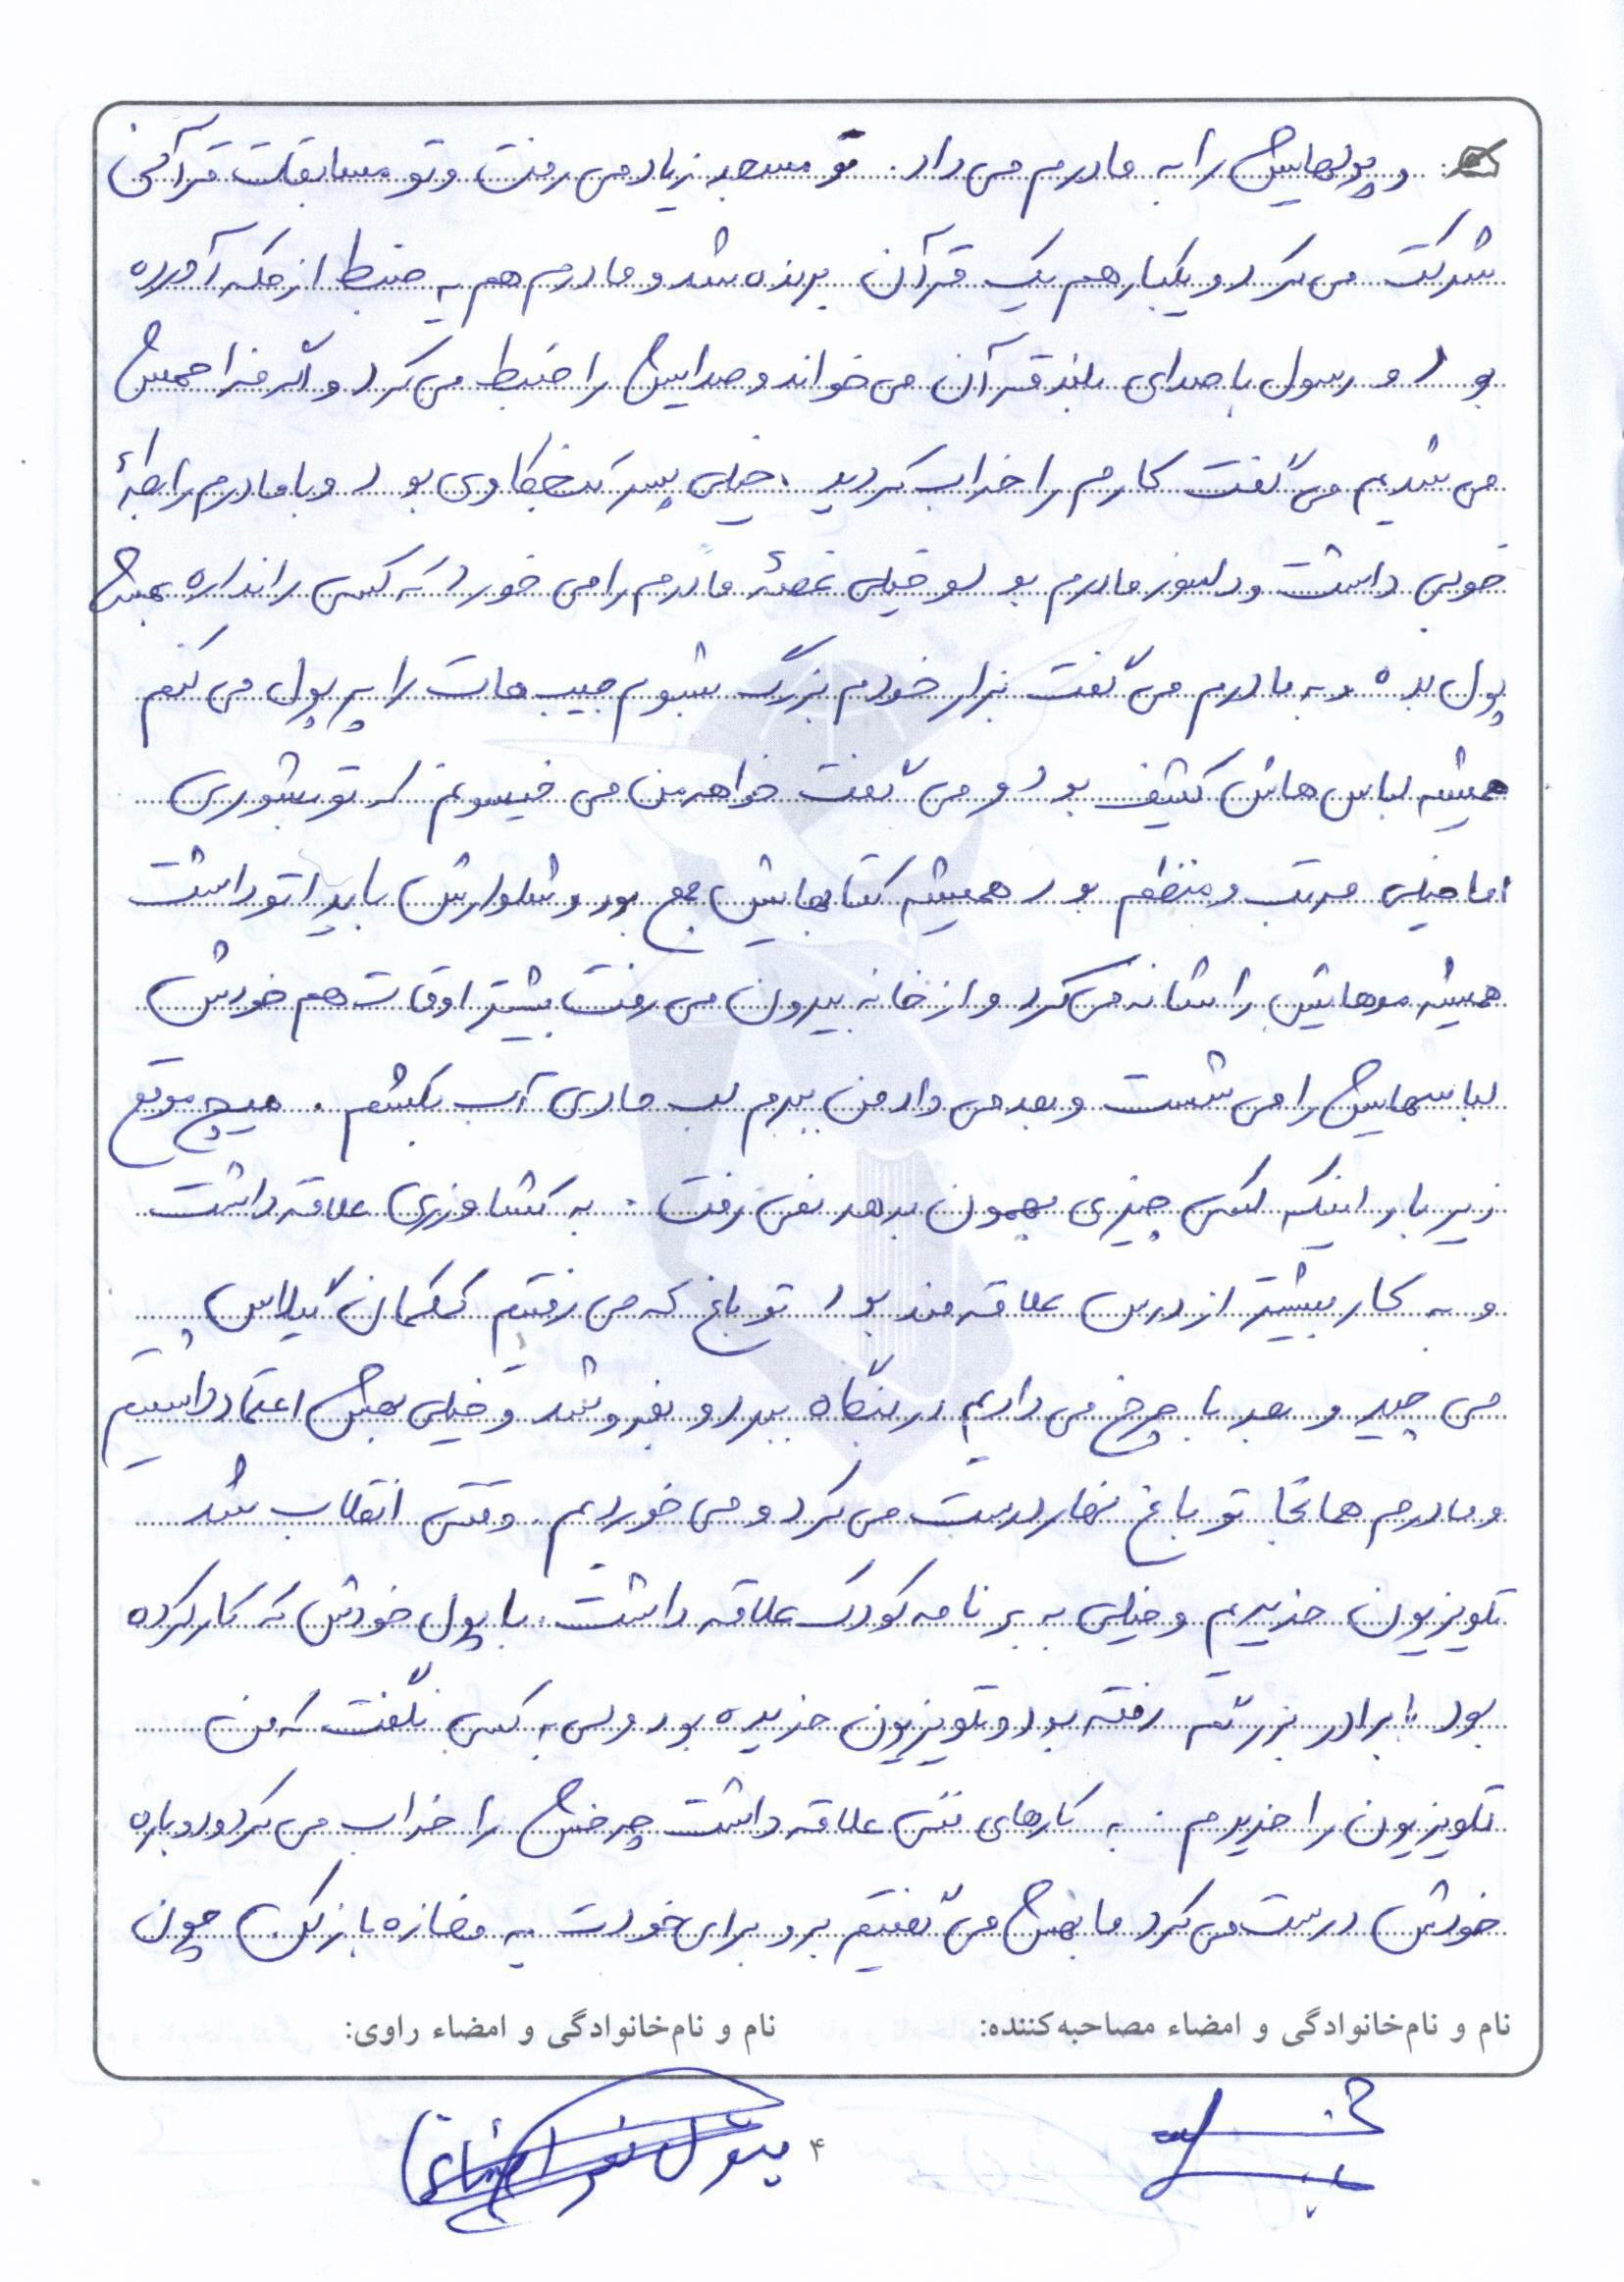 و پولهایش را به مادرم می داد. تو مسجد زیاد می رفت و تو مسابقات قرآنی
شرکت می کرد و یکبار هم یک قرآن برنده شد و مادرم هم یه ضبط از مکه آورده
بود و رسول با صدای بلند قرآن می خواند و صدایش را ضبط می کرد و اگر مزاحمش
می شدیم می گفت کارم را خراب کردید. خیلی پسر کنجکاوی بود و با مادرم رابطۀ
خوبی داشت و دلسوز مادرم بود و خیلی غصۀ مادرم را می خورد که کسی را نداره بهش
پول بده و به مادرم می گفت بزار خودم بزرگ بشوم جیب هات را پر پول می کنم
همیشه لباس هاش کثیف بود و می گفت خواهر من می خیسونم که تو بشوری
اما خیلی مرتب و منظم بود همیشه کتابهایش جمع بود و شلوارش باید اتو داشت
همیشه موهایش را شانه می کرد و از خانه بیرون می رفت بیشتر اوقات هم خودش
لباسهایش را می شست و بعد می داد من ببرم لب مادی آب بکشم. هیچ موقع
زیر بار اینکه کسی چیزی بهمون بدهد نمی رفت. به کشاورزی علاقه داشت
و به کار بیشتر از درس علاقه مند بود تو باغ که می رفتیم کمکمان گیلاس
می چید و بعد با چرخ می دادیم در بنگاه ببرد و بفروشد و خیلی بهش اعتماد داشتیم
و مادرم همانجا تو باغ نهار درست می کرد و می خوردیم. وقتی انقلاب شد
تلویزیون خریدیم و خیلی به برنامه کودک علاقه داشت. با پول خودش که کار کرده
بود با برادر بزرگم رفته بود و تلویزیون خریده بود ولی به کسی نگفت که من
تلویزیون را خریدم. به کارهای فنی علاقه داشت چرخش را خراب می کرد و دوباره
خودش درست می کرد ما بهش می گفتیم برو برای خودت یه مغازه باز کن چون
نام و نام‌خانوادگی و امضاء مصاحبه‌کننده: نام و نام‌خانوادگی و امضاء راوی:
۴